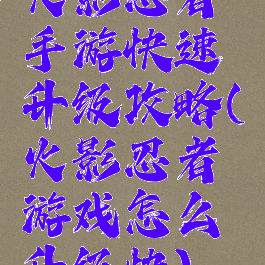 火影忍者
手游快速
升级攻略(
火影忍者
游戏怎么
升级快)